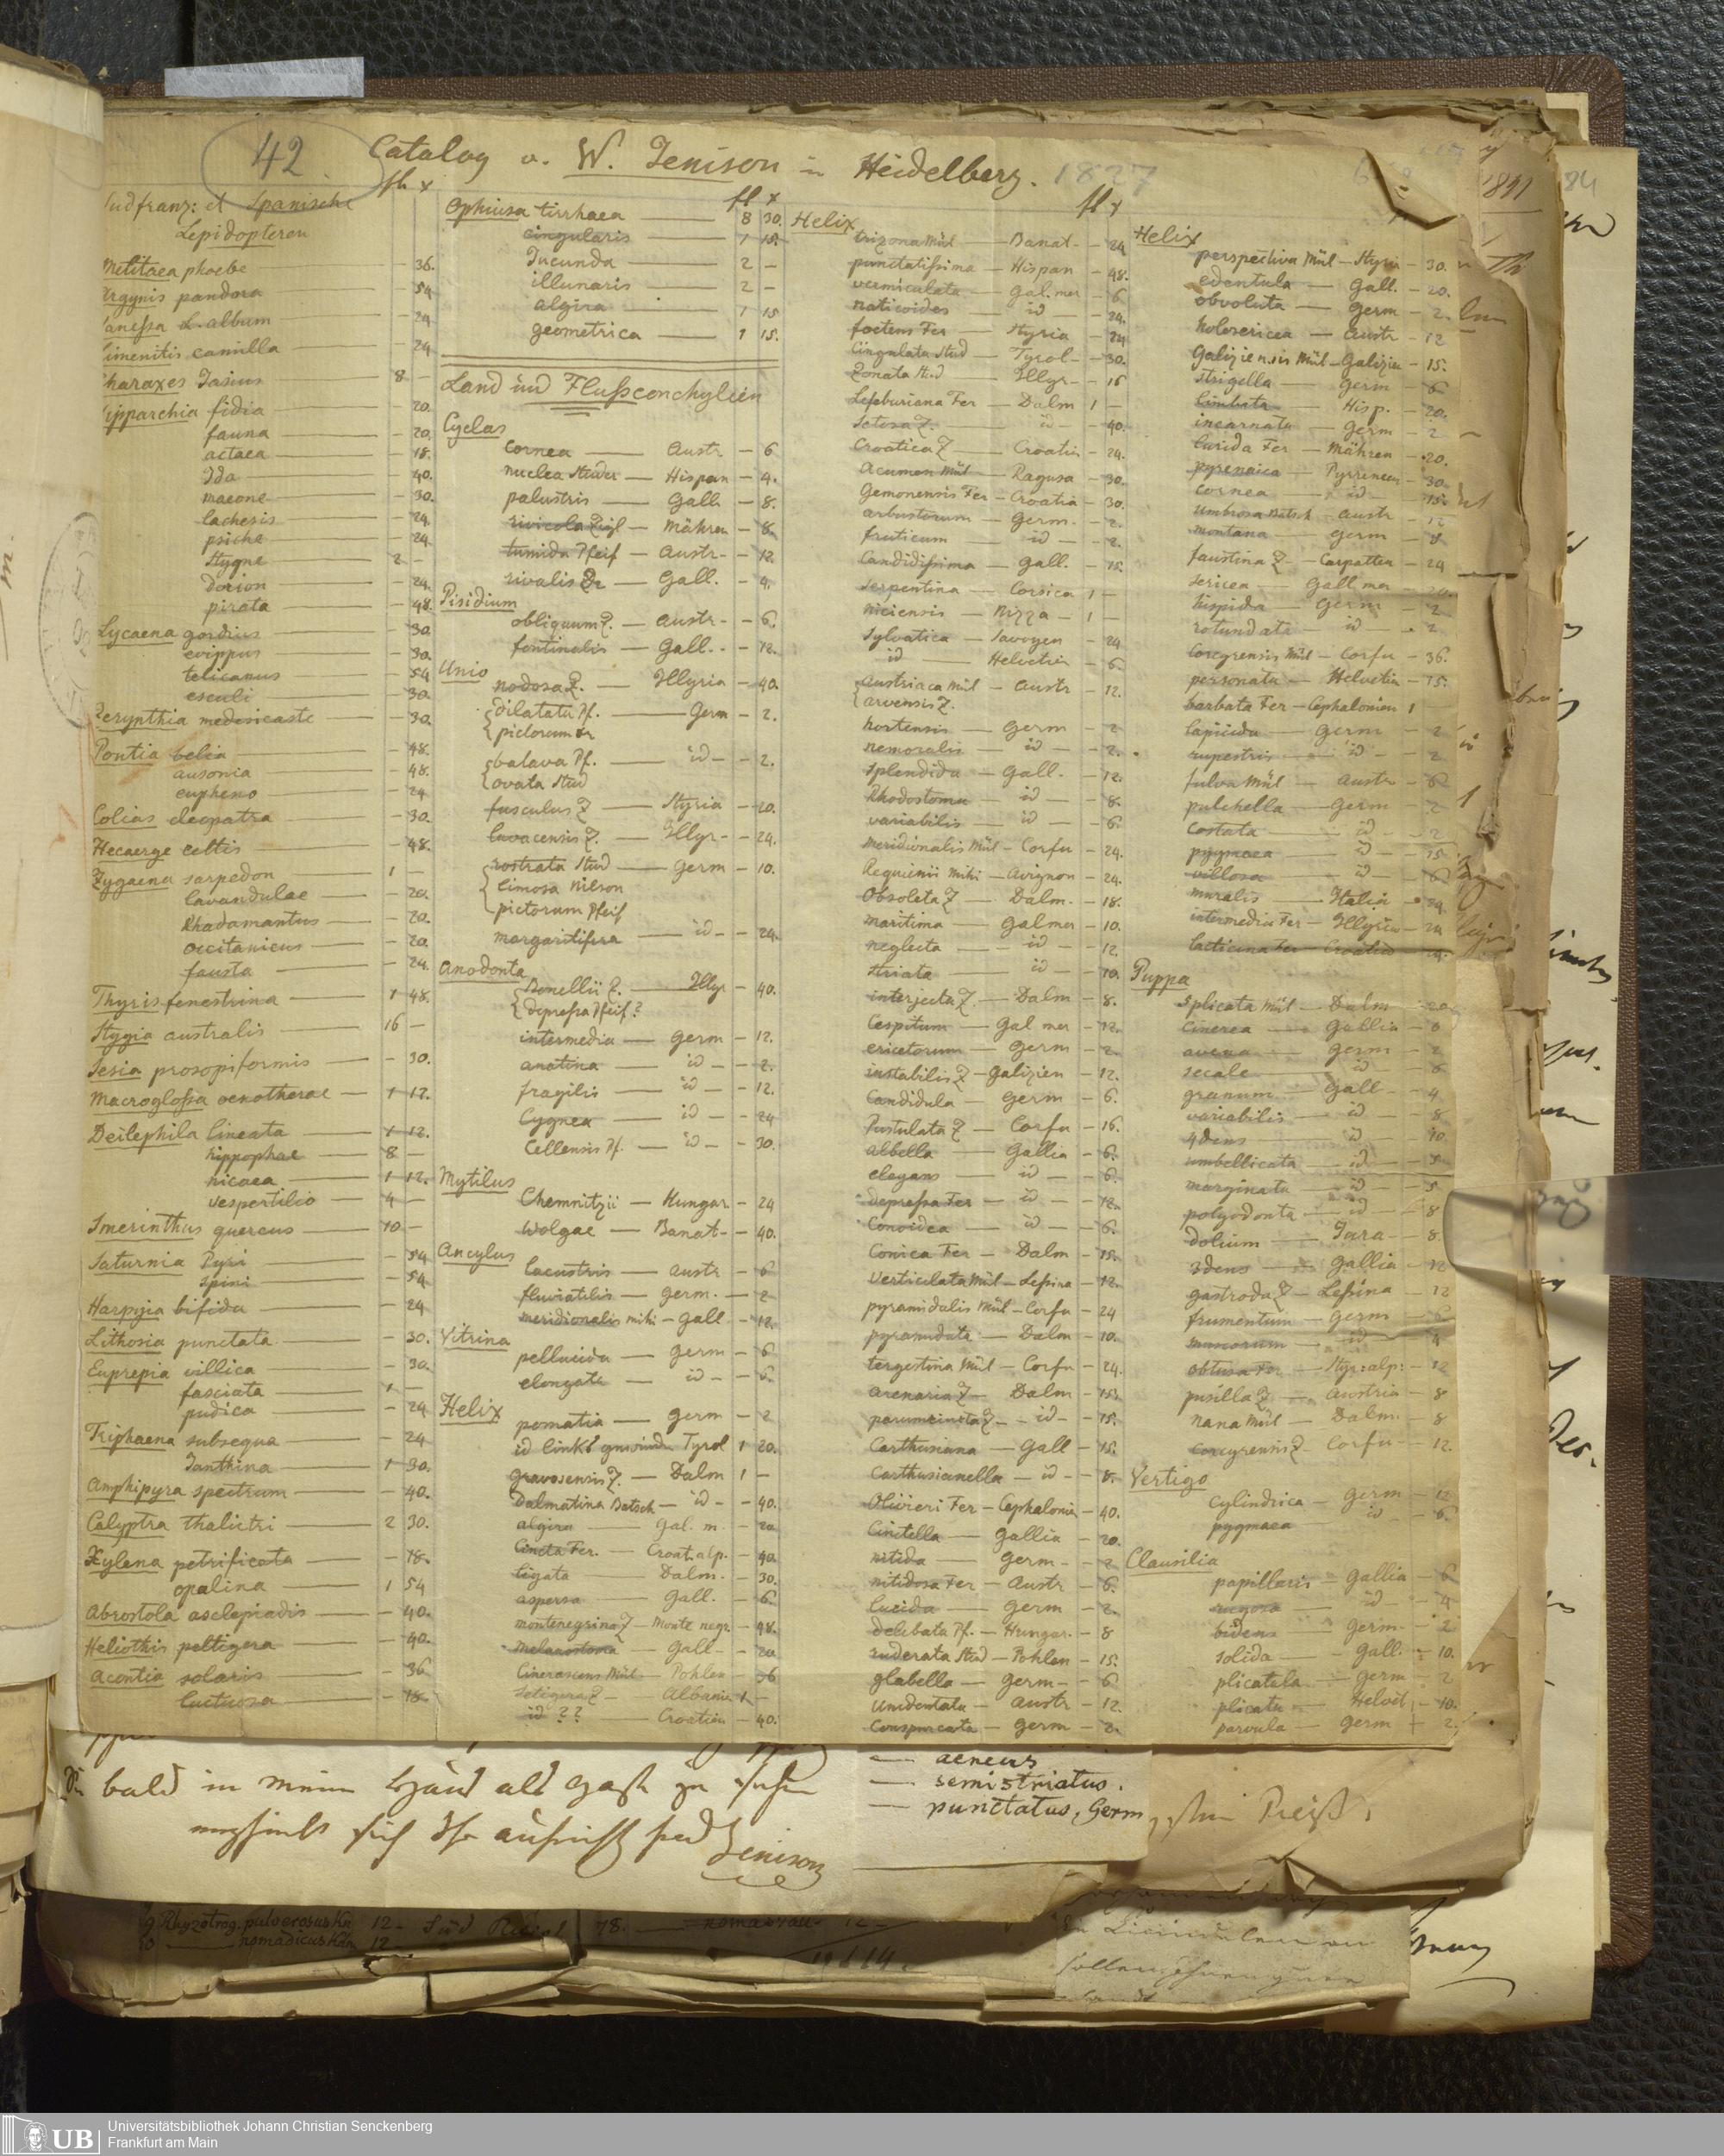 42.
Catalog v. W. Jenison in Heidelberg. 1827
fl x
Südfranz: et Spanische
Lepidopteren
Melitaea phoebe — 36.
Argynis pandora — 54
Vanessa L. album — 24
Limenitis camilla — 24
Charaxes Jasius 8 —
Hipparchia fidia — 20.
fauna — 20.
actaea — 18.
Ida — 40.
maeone — 30.
lachesis — 24.
psiche — 24.
Stygne 2 —
dorion — 24.
pirata — 48.
Lycaena gordius — 30.
evippus — 30.
telicanus — 54
esculi — 30.
Zerynthia medesicaste — 30.
Pontia belia — 48.
ausonia — 48.
eupheno — 24
Colias cleopatra — 30.
Hecaerge celtis — 48.
Zygaena sarpedon 1 —
lavandulae — 20.
Rhadamantus — 20.
occitanicus — 20
fausta — 24.
Thyris fenestrina 1 48.
Stygia australis 16 —
Sesia prosopiformis — 30.
Macroglossa oenotherae 1 12.
Deilephila lineata 1 12.
hippophae 8 —
nicaea 1 12.
vespertilio 4 —
Smerinthus quercus 10 —
Saturnia Pyri — 54
Spini — 54.
Harpyia bifida — 24
Lithosia punctata — 30.
Euprepia villica — 30.
fasciata 1 —
pudica — 24
Triphaena subsequa — 24
Janthina 1 30.
Amphipyra spectrum — 40.
Calyptra thalictri 2 30.
Xylena petrificata — 18.
opalina 1 54
Abrostola asclepiadis — 40.
Heliothis peltigera — 40.
Acontia solaris — 36
luctuosa — 18.
fl x
Ophiusa tirrhaea 8 30.
cingularis 1 15.
Jucunda 2 —
illunaris 2 —
algira 1 15
geometrica 1 15.
Land und Flußconchylien
Cyclas
cornea — Austr. — 6
nuclea Studer — Hispan — 4.
palustris — Gall. — 8.
rivicola — Mähren — 8.
tumida Pfeif — Austr. — 12.
rivalis Dr — Gall. — 4.
Pisidium
obliquum Z. — Austr. — 6.
fontinalis — Gall. — 12.
Unio
nodosa Z. — Illyria — 40.
dilatata Pf. — Germ — 2.
pictorum Dr
batava Pf. — id — 2.
ovata Stud
fusculus Z — Styria — 20.
lavacensis Z. — Illyr. — 24.
rostrata Stud — Germ — 10.
limosa Nilson
pictorum Pfeif
margaritifera — id — 24.
Anodonta
Bonellii Z. — Illyr — 40.
depressa Pfeif?
intermedia — Germ — 12.
anatina — id — 2.
fragilis — id — 12.
Cygnea — id — 24
Cellensis Pf. — id — 30.
Mytilus
Chemnitzii — Hungar — 24
Wolgae — Banat — 40.
Ancylus
lacustris — Austr — 6
fluviatilis — Germ. — 2
meridionalis mihi — Gall — 12.
Vitrina
pellucida — Germ — 6
elongata — id — 6.
Helix
pomatia — Germ — 2
id links gewunden Tyrol 1 20.
gravosensis Z. — Dalm 1 —
Dalmatina Batsch — id — 40.
algira — Gal. m. — 20
Cincta Fer. — Croat. alp. — 40.
ligata — Dalm. — 30.
aspersa — Gall. — 6.
montenegrina Z — Monte negr. — 48.
melanostoma — Gall — 20
Cinerascens Mül — Pohlen — 36
Setigera Z — Albania 1 —
id ?? — Croatien — 40.
fl x
Helix
trizona Mül — Banat — 24
punctatissima — Hispan — 48.
vermiculata — Gal. mer — 6
naticoides — id — 24.
foetens Fer — Styria — 24
Cingulata Stud — Tyrol — 30.
Zonata St.d — Illyr — 16
Lefeburiana Fer — Dalm 1 —
Setosa Z. — id — 40.
Croatica Z — Croatia — 24.
Acumen Mül — Ragusa — 30.
Gemonensis Fer — Croatia — 30.
arbustorum — Germ. — 2.
fruticum — id — 2.
Candidissima — Gall. — 15.
Serpentina — Corsica 1 —
niciensis — Nizza — 1 —
Sylvatica — Savoyen — 24
id — Helvetia — 6.
Austriaca Mül — Austr — 12.
arvensis Z.
hortensis — Germ — 2
nemoralis — id — 2.
Splendida — Gall. — 12.
Rhodostoma — id — 8.
variabilis — id — 6.
meridionalis Mül — Corfu — 24.
Requienii Mihi — Avignon — 24.
Obsoleta Z — Dalm. — 18.
maritima — Gal mer — 10.
neglecta — id — 12.
Striata — id — 10.
interjecta Z. — Dalm — 8.
Cespitum — Gal mer — 12.
ericetorum — Germ — 2.
instabilis Z — Galizien — 12.
Candidula — Germ — 6.
Pustulata Z — Corfu — 16.
albella — Gallia — 6.
elegans — id — 6.
depressa Fer — id — 12.
Conoidea — id — 6.
Conica Fer — Dalm — 15.
Verticulata Mül — Lessina — 12.
pyramidalis Mül — Corfu — 24
pyramidata — Dalm — 10.
tergestina Mül — Corfu — 24.
arenaria Z — Dalm — 15.
parumcincta Z — id — 15.
Carthusiana — Gall — 15.
Carthusianella — id — 8.
Olivieri Fer — Cephalonia — 40.
Cinctella — Gallia — 20.
nitida — Germ — 2
nitidosa Fer — Austr — 6.
lucida — Germ — 2.
delibata Pf. — Hungar. — 8
ruderata Stud — Pohlen — 15.
glabella — Germ — 6
Unidentata — Austr — 12.
Conspurcata — Germ — 2.
Helix
perspectiva Mül — Styria — 30.
edentula — Gall. — 20.
obvoluta — Germ — 2.
holosericea — Austr — 12
Galiziensis Mül — Galizien — 15.
strigella — Germ — 6
limbata — Hisp. — 20.
incarnata — Germ — 2
lurida Fer — Mähren — 20.
pyrenaica — Pyrreneen — 30
cornea — id — 15.
Umbrosa Batsch — Austr — 12
montana — Germ — 8
faustina Z — Carpatten — 24
sericea — Gall mer
hispida — Germ — 2
rotundata — id — 2
Corcyrensis Mül — Corfu — 36.
personata — Helvetia — 15.
barbata Fer — Cephalonien 1
lapicida — Germ — 2
rupestris — id — 2
fulva Mül — Austr — 6
pulchella — Germ — 2
Costata — id — 2
pygmaea — id — 15
villosa — id — 6
muralis — Italia — 24
intermedia Fer — Illyrien — 24
lacticina Fer — Croatia — 24.
Puppa
Splicata Mül — Dalm — 20
Cinerea — Gallia — 6
avena — Germ — 2
secale — id — 6
granum — Gall — 4
variabilis — id — 8
4dens — id — 10
umbellicata — id — 5
marginata — id — 5
polyodonta — id — 8
dolium — Jura — 8
3dens — Gallia — 12
gastrodu Z — Lessina — 12
frumentum — Germ — 6
muscorum — id — 4
obtusa Fer — Styr: alp: — 12
pusilla Z — Austria — 8
nana Mül — Dalm. — 8
Corcyrensis Z — Corfu — 12.
Vertigo
cylindrica — Germ — 12
pygmaea — id — 6.
Clausilia
papillaris — Gallia — 6
rugosa — id — 4
bidens — Germ. — 2
solida — Gall. — 10.
plicatula — Germ — 2
plicata — Helvet — 10.
parvula — Germ — 2.
— aeneus
— semistriatus.
— punctatus, Germ
bald in meinem Hause als Gast zu sehen
empfiehlt sich Ihr aufricht
Jenison
Preiß.
Rhyzotrog. pulverosus Kn 12 —
nomadicus Kn 12
UB
Universitätsbibliothek Johann Christian Senckenberg
Frankfurt am Main